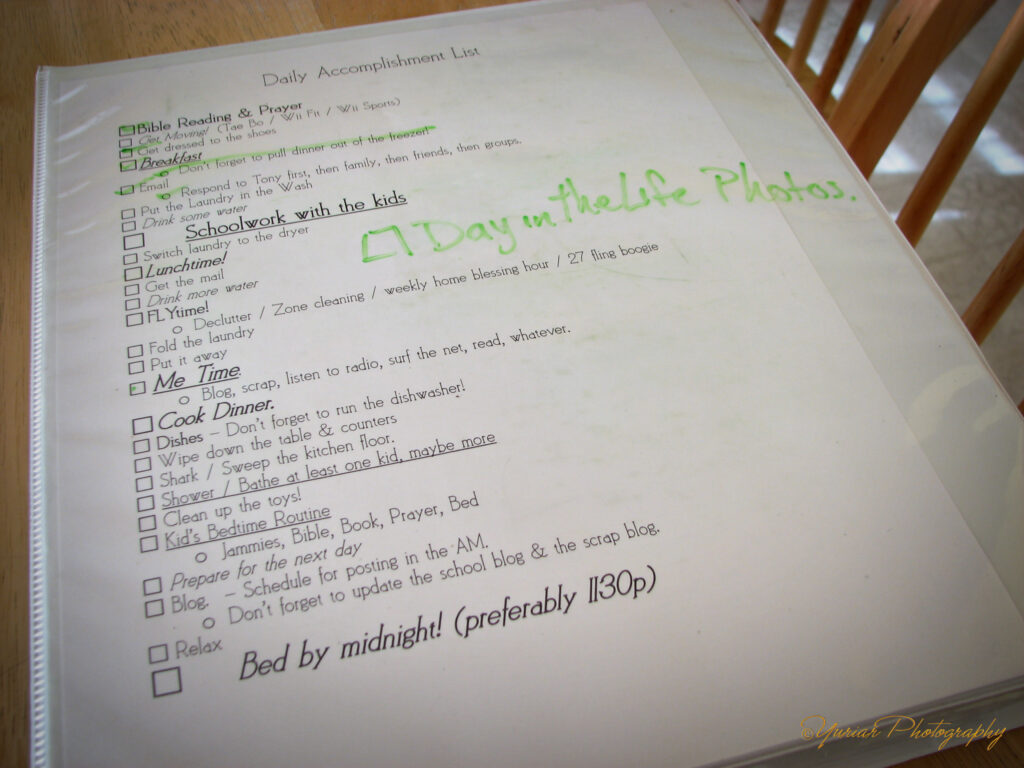 Daily Accomplishment List
Bible Reading & Prayer
Get Moving! (Tae Bo / Wii Fit / Wii Sports)
Get dressed to the shoes
Breakfast
Don't forget to pull dinner out of the freezer!
Email
Respond to Tony first, then family, then friends, then groups.
Put the Laundry in the Wash
Drink some water
Schoolwork with the kids
Day in the Life Photos.
Switch laundry to the dryer
Lunchtime!
Get the mail
Drink more water
FLYtime!
Declutter / Zone cleaning / weekly home blessing hour / 27 fling boogie
Fold the laundry
Put it away
Me Time.
Blog, scrap, listen to radio, surf the net, read, whatever.
Cook Dinner.
Dishes – Don't forget to run the dishwasher!
Wipe down the table & counters
Shark / Sweep the kitchen floor.
Shower / Bathe at least one kid, maybe more
Clean up the toys!
Kid's Bedtime Routine
Jammies, Bible, Book, Prayer, Bed
Prepare for the next day
Blog. – Schedule for posting in the AM.
Don't forget to update the school blog & the scrap blog.
Relax
Bed by midnight! (preferably 1130p)
©Yuriar Photography